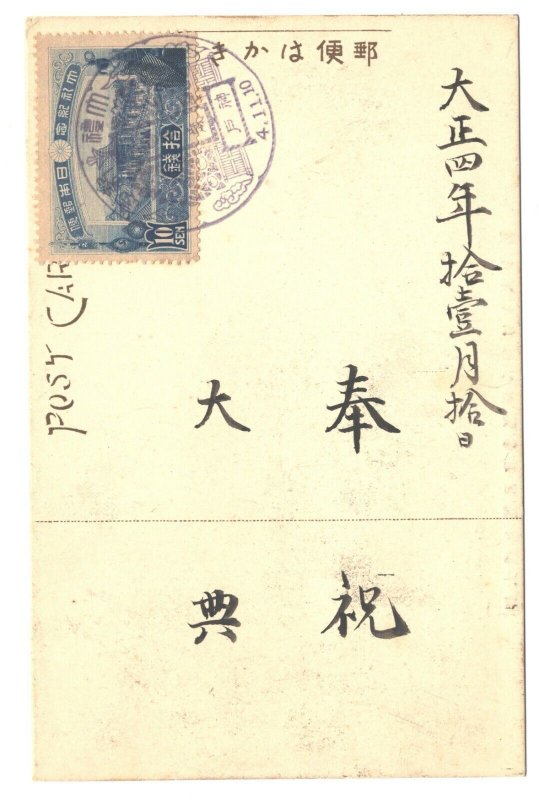 郵便はかき
大正四年拾壹月拾日
奉祝
大典
POST CAR
大礼記念
日本郵便
拾錢
10 SEN
大禮
神戸
4.11.10